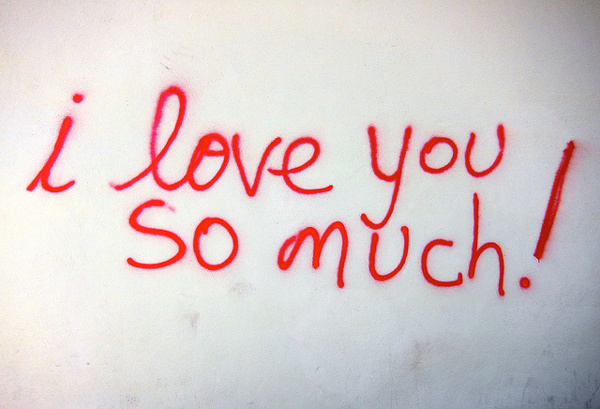 i love you
so much!